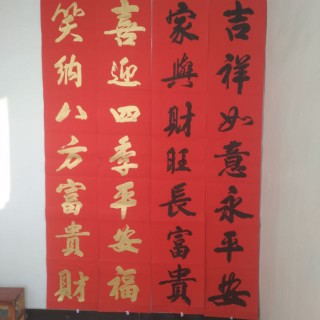 吉祥如意永平安
家興財旺長富貴
喜迎四季平安福
笑納八方富貴財